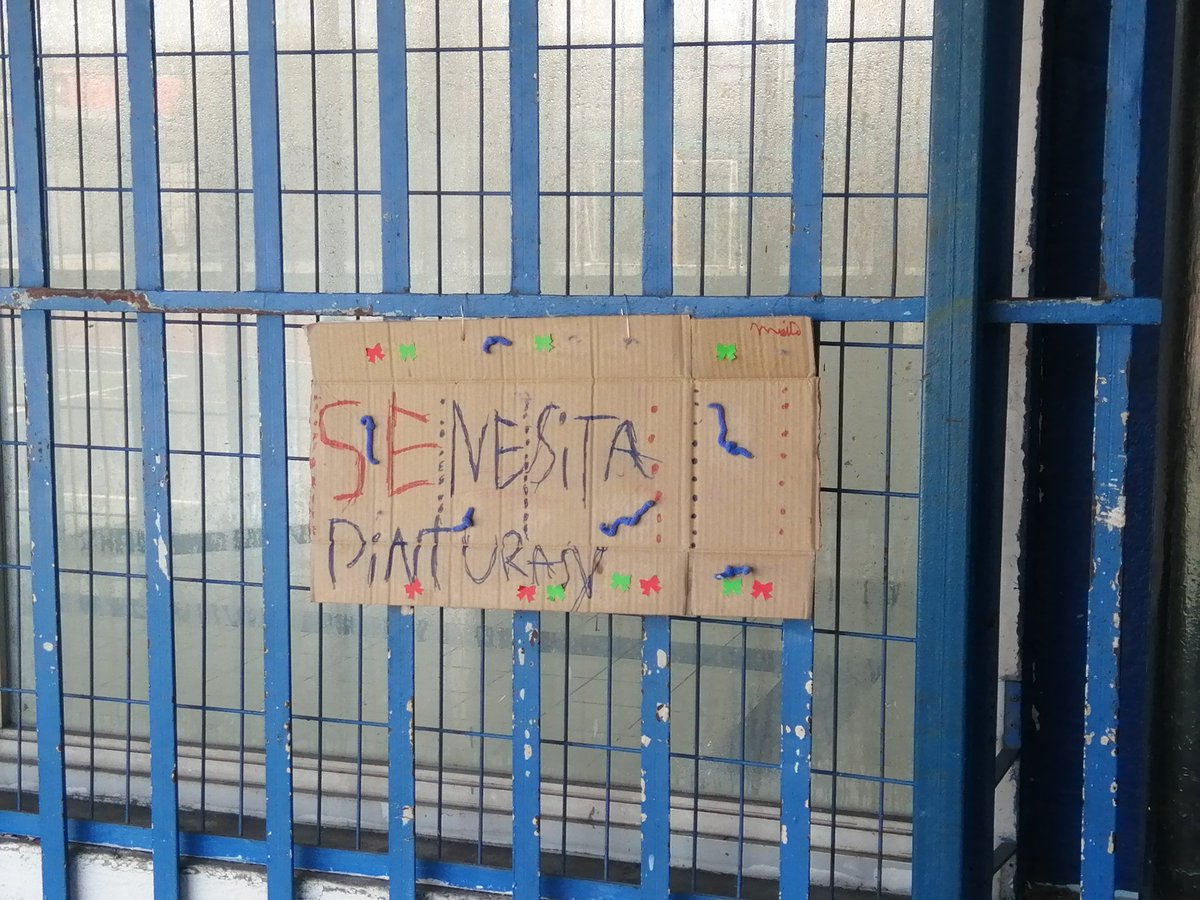 SE NESITA
PINTURAS